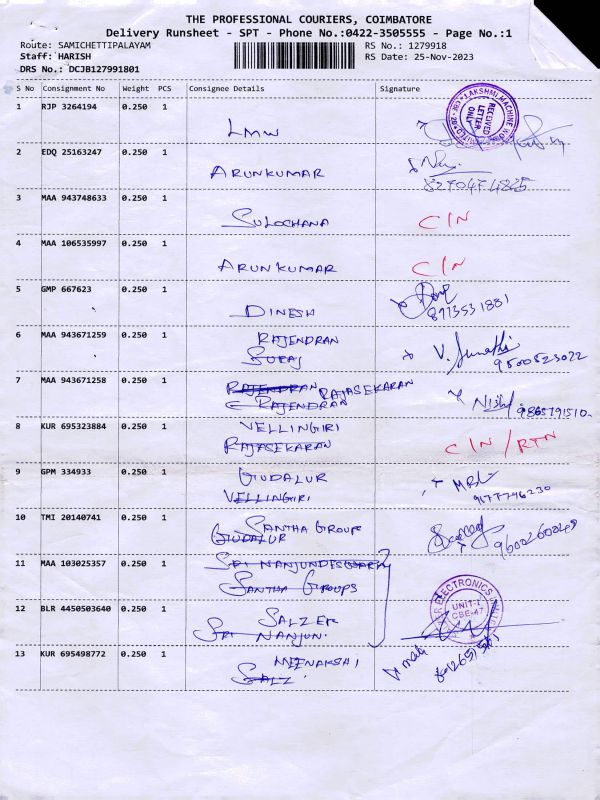 THE PROFESSIONAL COURIERS, COIMBATORE
Delivery Runsheet - SPT - Phone No.:0422-3505555 - Page No.:1
Route: SAMICHETTIPALAYAM
RS No.: 1279918
Staff: HARISH
RS Date: 25-Nov-2023
DRS No.: DCJB127991801
S No Consignment No Weight PCS Consignee Details Signature
1 RJP 3264194 0.250 1 LMW
LAKSHMI MACHINE
RECEIVED
LETTER
ONLY
2 EDQ 25163247 0.250 1 ARUNKUMAR
3 MAA 943748633 0.250 1 SULOCHANA C/N
4 MAA 106535997 0.250 1 ARUNKUMAR C/N
5 GMP 667623 0.250 1 DINESH
8973531881
6 MAA 943671259 0.250 1 RAJENDRAN
SURAJ
V. Sumathi
9500523022
7 MAA 943671258 0.250 1 RAJENDRAN RAJASEKARAN
RAJENDRAN
9865791510
8 KUR 695323884 0.250 1 VELLINGIRI
RAJASEKARAN
C/N / RTN
9 GPM 334933 0.250 1 GUDALUR
VELLINGIRI
9177746230
10 TMI 20140741 0.250 1 SANTHA GROUP
GUDALUR
9600260049
11 MAA 103025357 0.250 1 SRI NANJUNDESWARA
SANTHA GROUPS
12 BLR 4450503640 0.250 1 SALZER
SRI NANJUN.
ELECTRONICS
UNIT-I
CBE-47
13 KUR 695498772 0.250 1 MEENAKSHI
SALZ